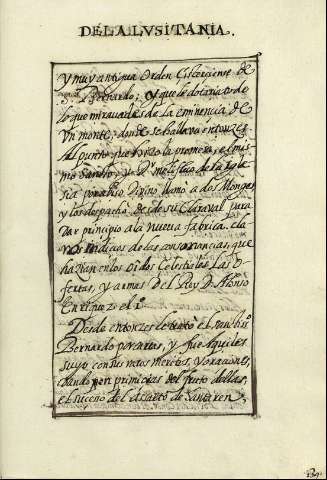 DE LA LVSITANIA.
y muy antigua Orden Cisterçiense de
S. Bernardo; y que le dotaria todo
lo que mirava desde la eminencia de
Un monte, donde se hallava entonzes.
Al punto que hizo la promesa, el mismo
Santo, y melifluo de la Igle
sia por aviso Divino llamo a dos Monges,
y los despachó desde su Claraval para
Dar principio a la nueva fabrica. Cla
ros indicios de las consonancias, que
hazian en los Oidos Celestiales las O
fertas, y armas del Rey D. Alonso
Enriquez el 1º
Desde entonzes le trató el san
Bernardo por cartas, y fue Aquiles
suyo con sus ratos meritos, y oraciones,
dando por primicias del fruto dellas,
el suceso del assalto de Santaren;